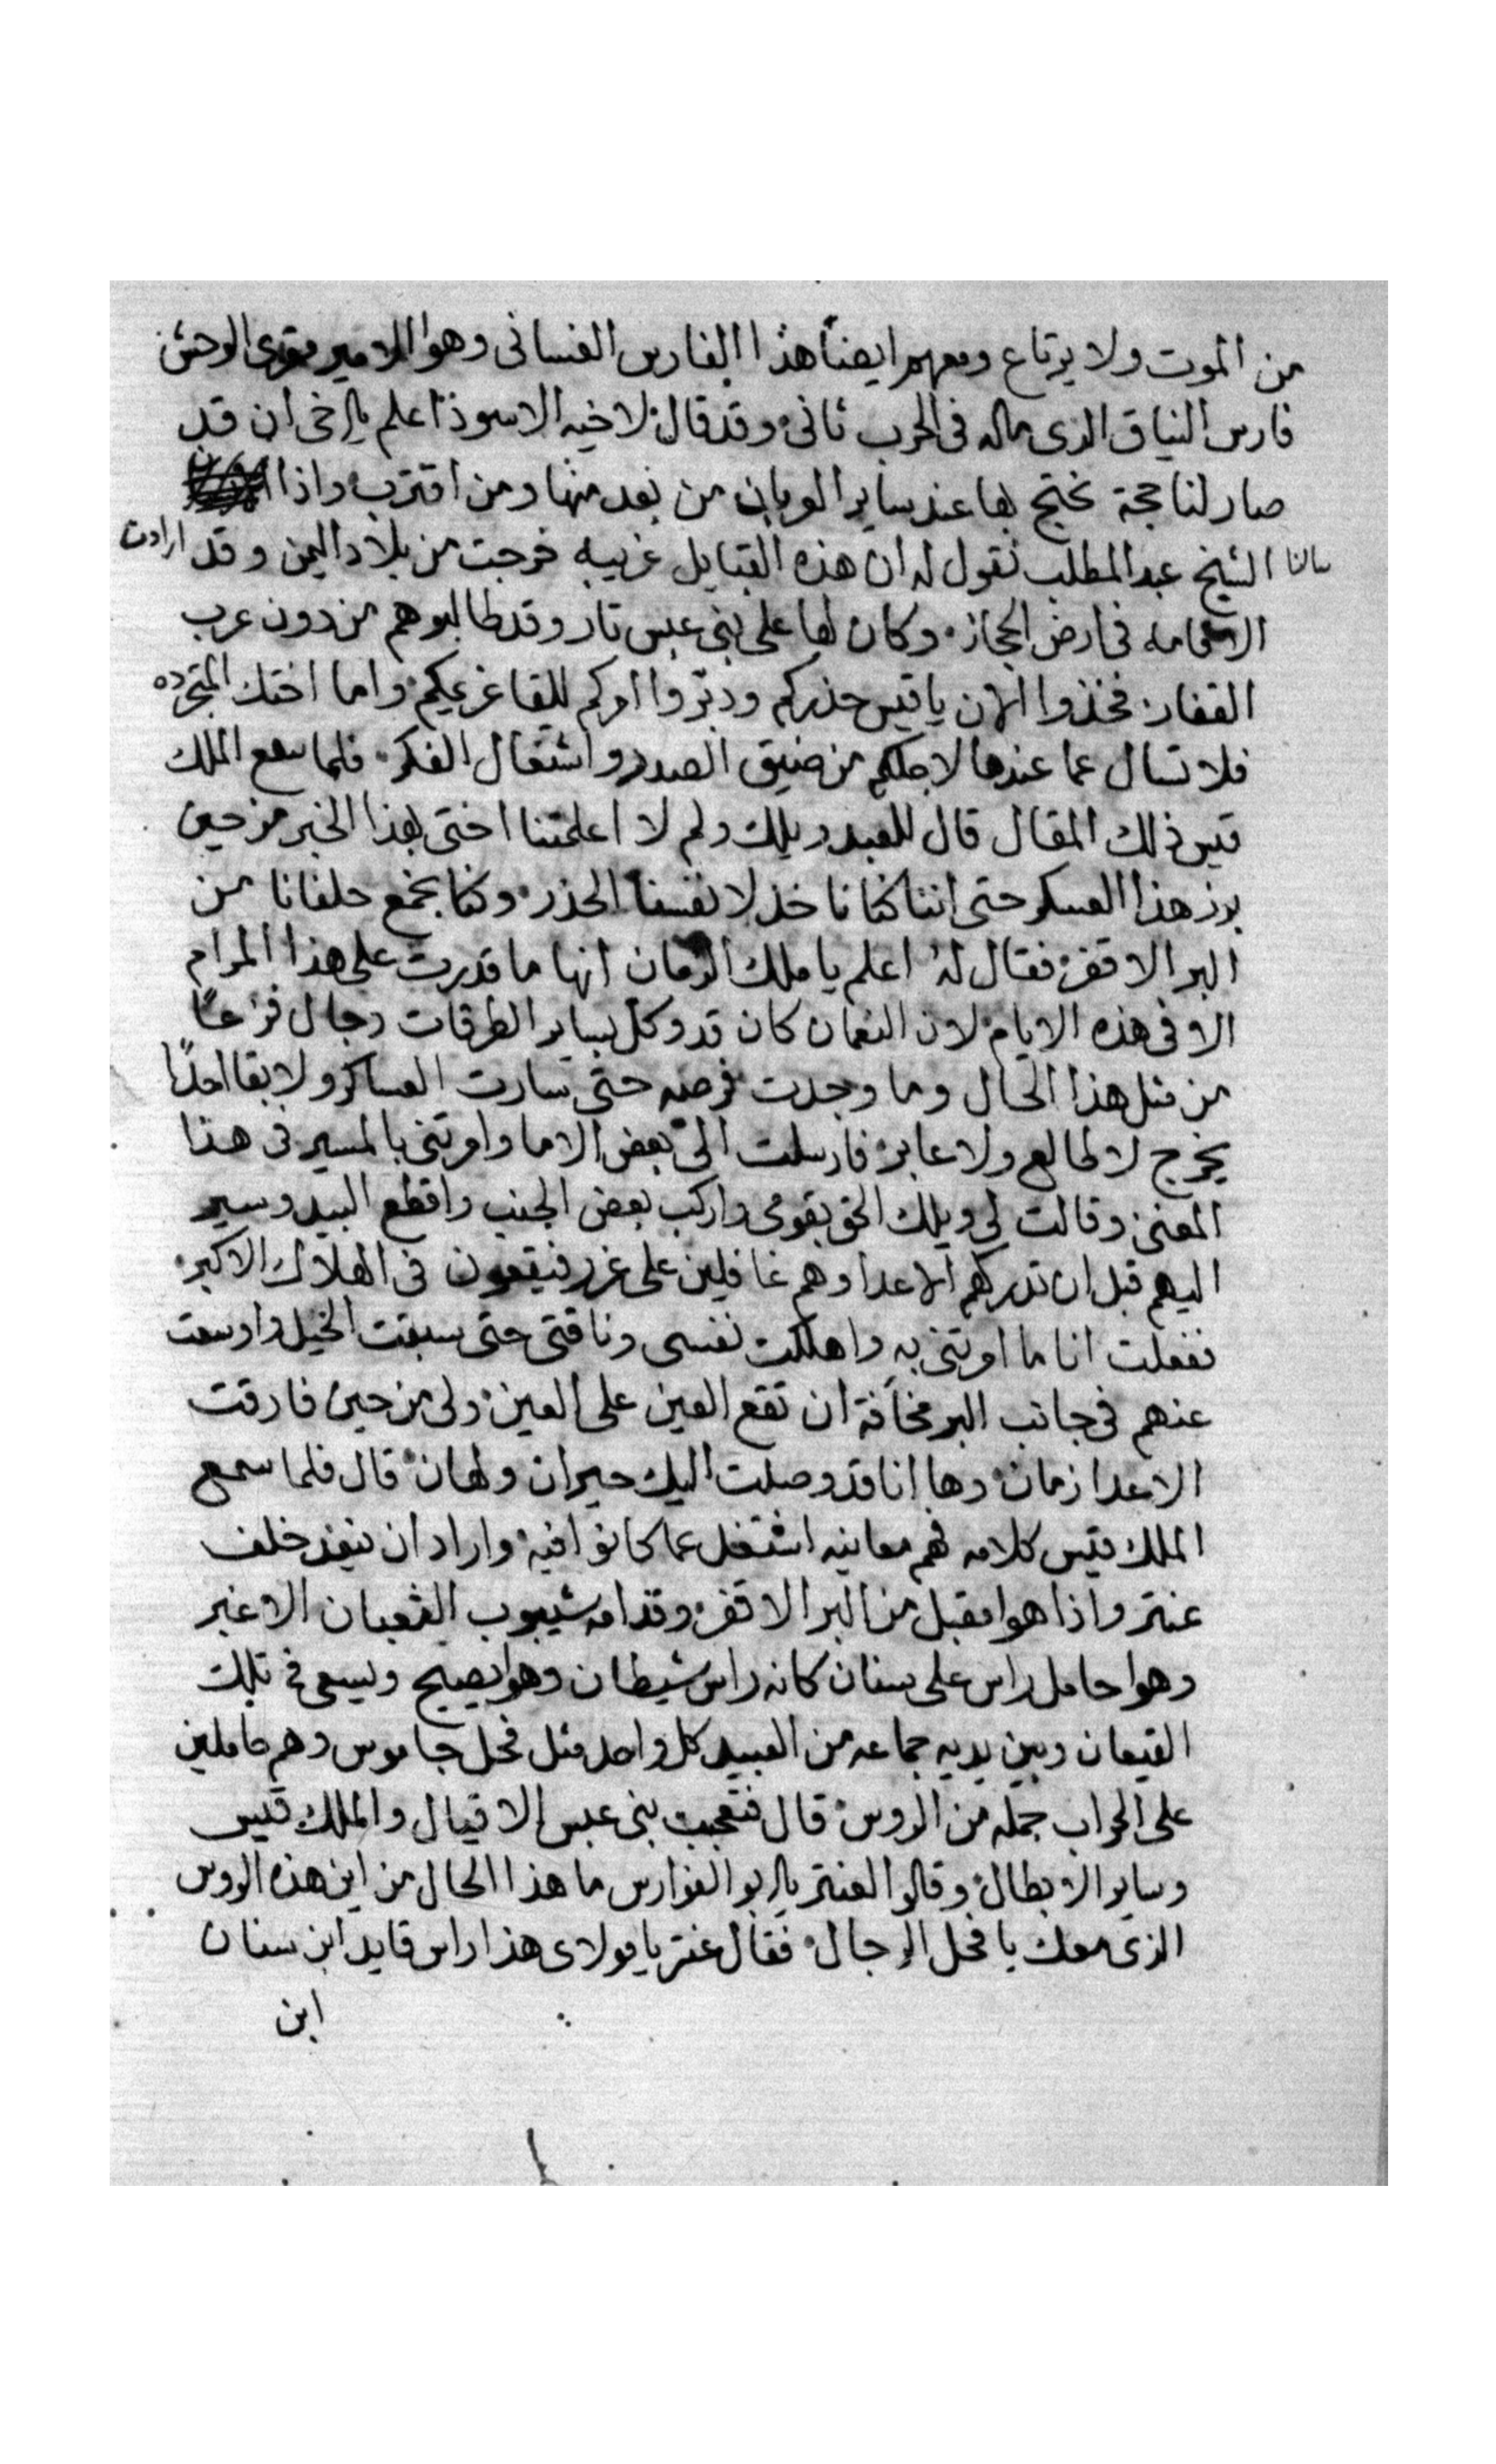 من الموت ولا يرتاع ومعهم ايضاً هذا الفارس الغسانى وهوا الامير مقرى الوحش
فارس النياق الدى ماله فى الحرب ثانى وقد قال لاخيه الاسود اعلم يا اخى ان قد
صار لنا حجة نحتج بها عند ساير العربان من بعد منها ومن اقترب واذا
سالنا الشيخ عبد المطلب نقول له ان هذه القبايل غريبه خرجت من بلاد اليمن وقد ارادت
الاقامه فى ارض الحجاز وكان لها على بنى عبس تار وقد طالبوهم من دون عرب
القفار فخذوا الان يا قيس حذركم ودبروا امركم للقا غريمكم واما اختك المتجرده
فلا تسال عما عندها لاجلكم من ضيق الصدر واشتغال الفكر فلما سمع الملك
قيس ذلك المقال قال للعبد ويلك ولم لا اعلمتنا اختى بهذا الخبر من حين
برز هذا العسكر حتى اننا كنا ناخذ لانفسنا الحذر وكنا نجمع حلفانا من
البر الاقفر فقال له اعلم يا ملك الزمان انها ما قدرت على هذا المرام
الا فى هذه الايام لان النعمان كان قد وكل بساير الطرقات رجال فزعاً
من مثل هذا الحال وما وجدت فرصه حتى سارت العساكر ولا بقا احداً
يخرج لا طالع ولا عابر فارسلت الىّ بعض الاما وامرتنى بالمسير فى هذا
المعنى وقالت لى ويلك الحق بقومى واركب بعض الجنب واقطع البيد وسير
اليهم قبل ان تدركهم الاعدا وهم غافلين على غرر فيقعون فى الهلاك الاكبر
ففعلت انا ما امرتنى به واهلكت نفسى وناقتى حتى سبقت الخيل واوسعت
عنهم فى جانب البر مخافة ان تقع العين على العين ولى من حين فارقت
الاعدا زمان وها انا قد وصلت اليك حيران ولهان قال فلما سمع
الملك قيس كلامه فهم معاينه اشتغل عما كانوا فيه واراد ان ينفذ خلف
عنتر واذا هوا مقبل من البر الاقفر وقدامه شيبوب الثعبان الاغبر
وهوا حامل راس على سنان كانه راس شيطان وهوا يصيح ويسعى فى تلك
القيعان وبين يديه جماعه من العبيد كل واحد مثل فحل جاموس وهم حاملين
على الحراب جمله من الروس قال فتعجبت بنى عبس الاقيال والملك قيس
وساير الابطال وقالوا لعنتر يا ابو الفوارس ما هذا الحال من اين هذه الروس
الذى معك يا فحل الرجال فقال عنتر يا مولاى هذا راس قايد ابن سنان
ابن